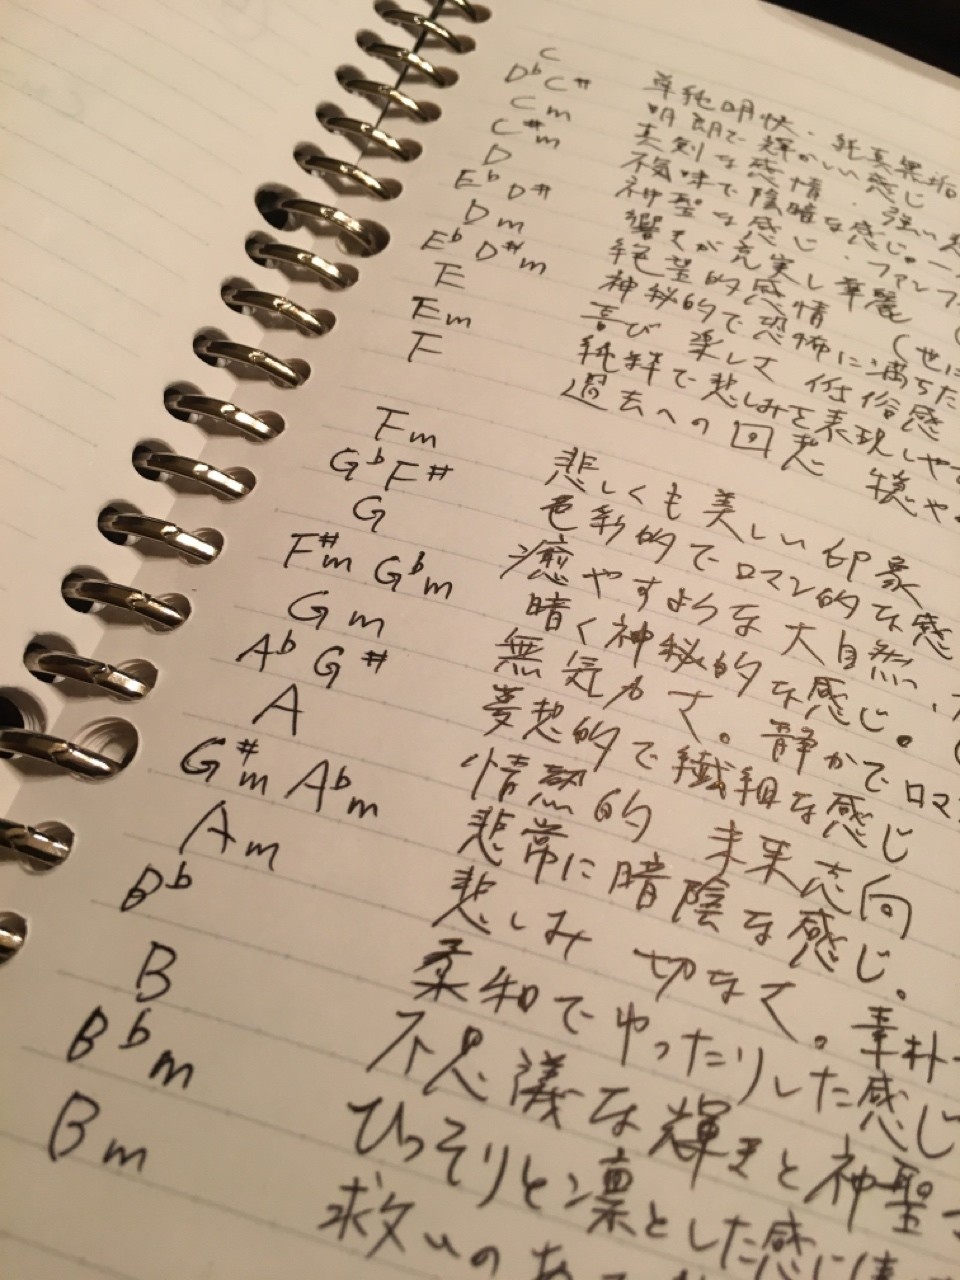 C 単純明快、純真無垢
D♭C# 明朗で輝かしい感じ
Cm 真剣な感情、強い
C#m 不気味で陰暗な感じ。
D 神聖な感じ、ファンフ
E♭D# 響きが充実し華麗
Dm 絶望的感情
E♭D#m 神秘的で恐怖に満ちた
E 喜び 楽しさ 低俗感
Em 純粋で悲しみを表現しやす
F 過去への回想 穏や
Fm 悲しくも美しい印象
G♭F# 色彩的でロマン的な感
G 癒やすような大自然、
F#m G♭m 暗く神秘的な感じ。
Gm 無気力さ。静かでロマ
A♭G# 夢想的で繊細な感じ
A 情熱的 未来志向
G#m A♭m 非常に暗陰な感じ。
Am 悲しみ 切なさ。素朴
B♭ 柔和でゆったりした感じ
B 不思議な輝きと神聖さ
B♭m ひっそりと凛とした感じ
Bm 救いのある